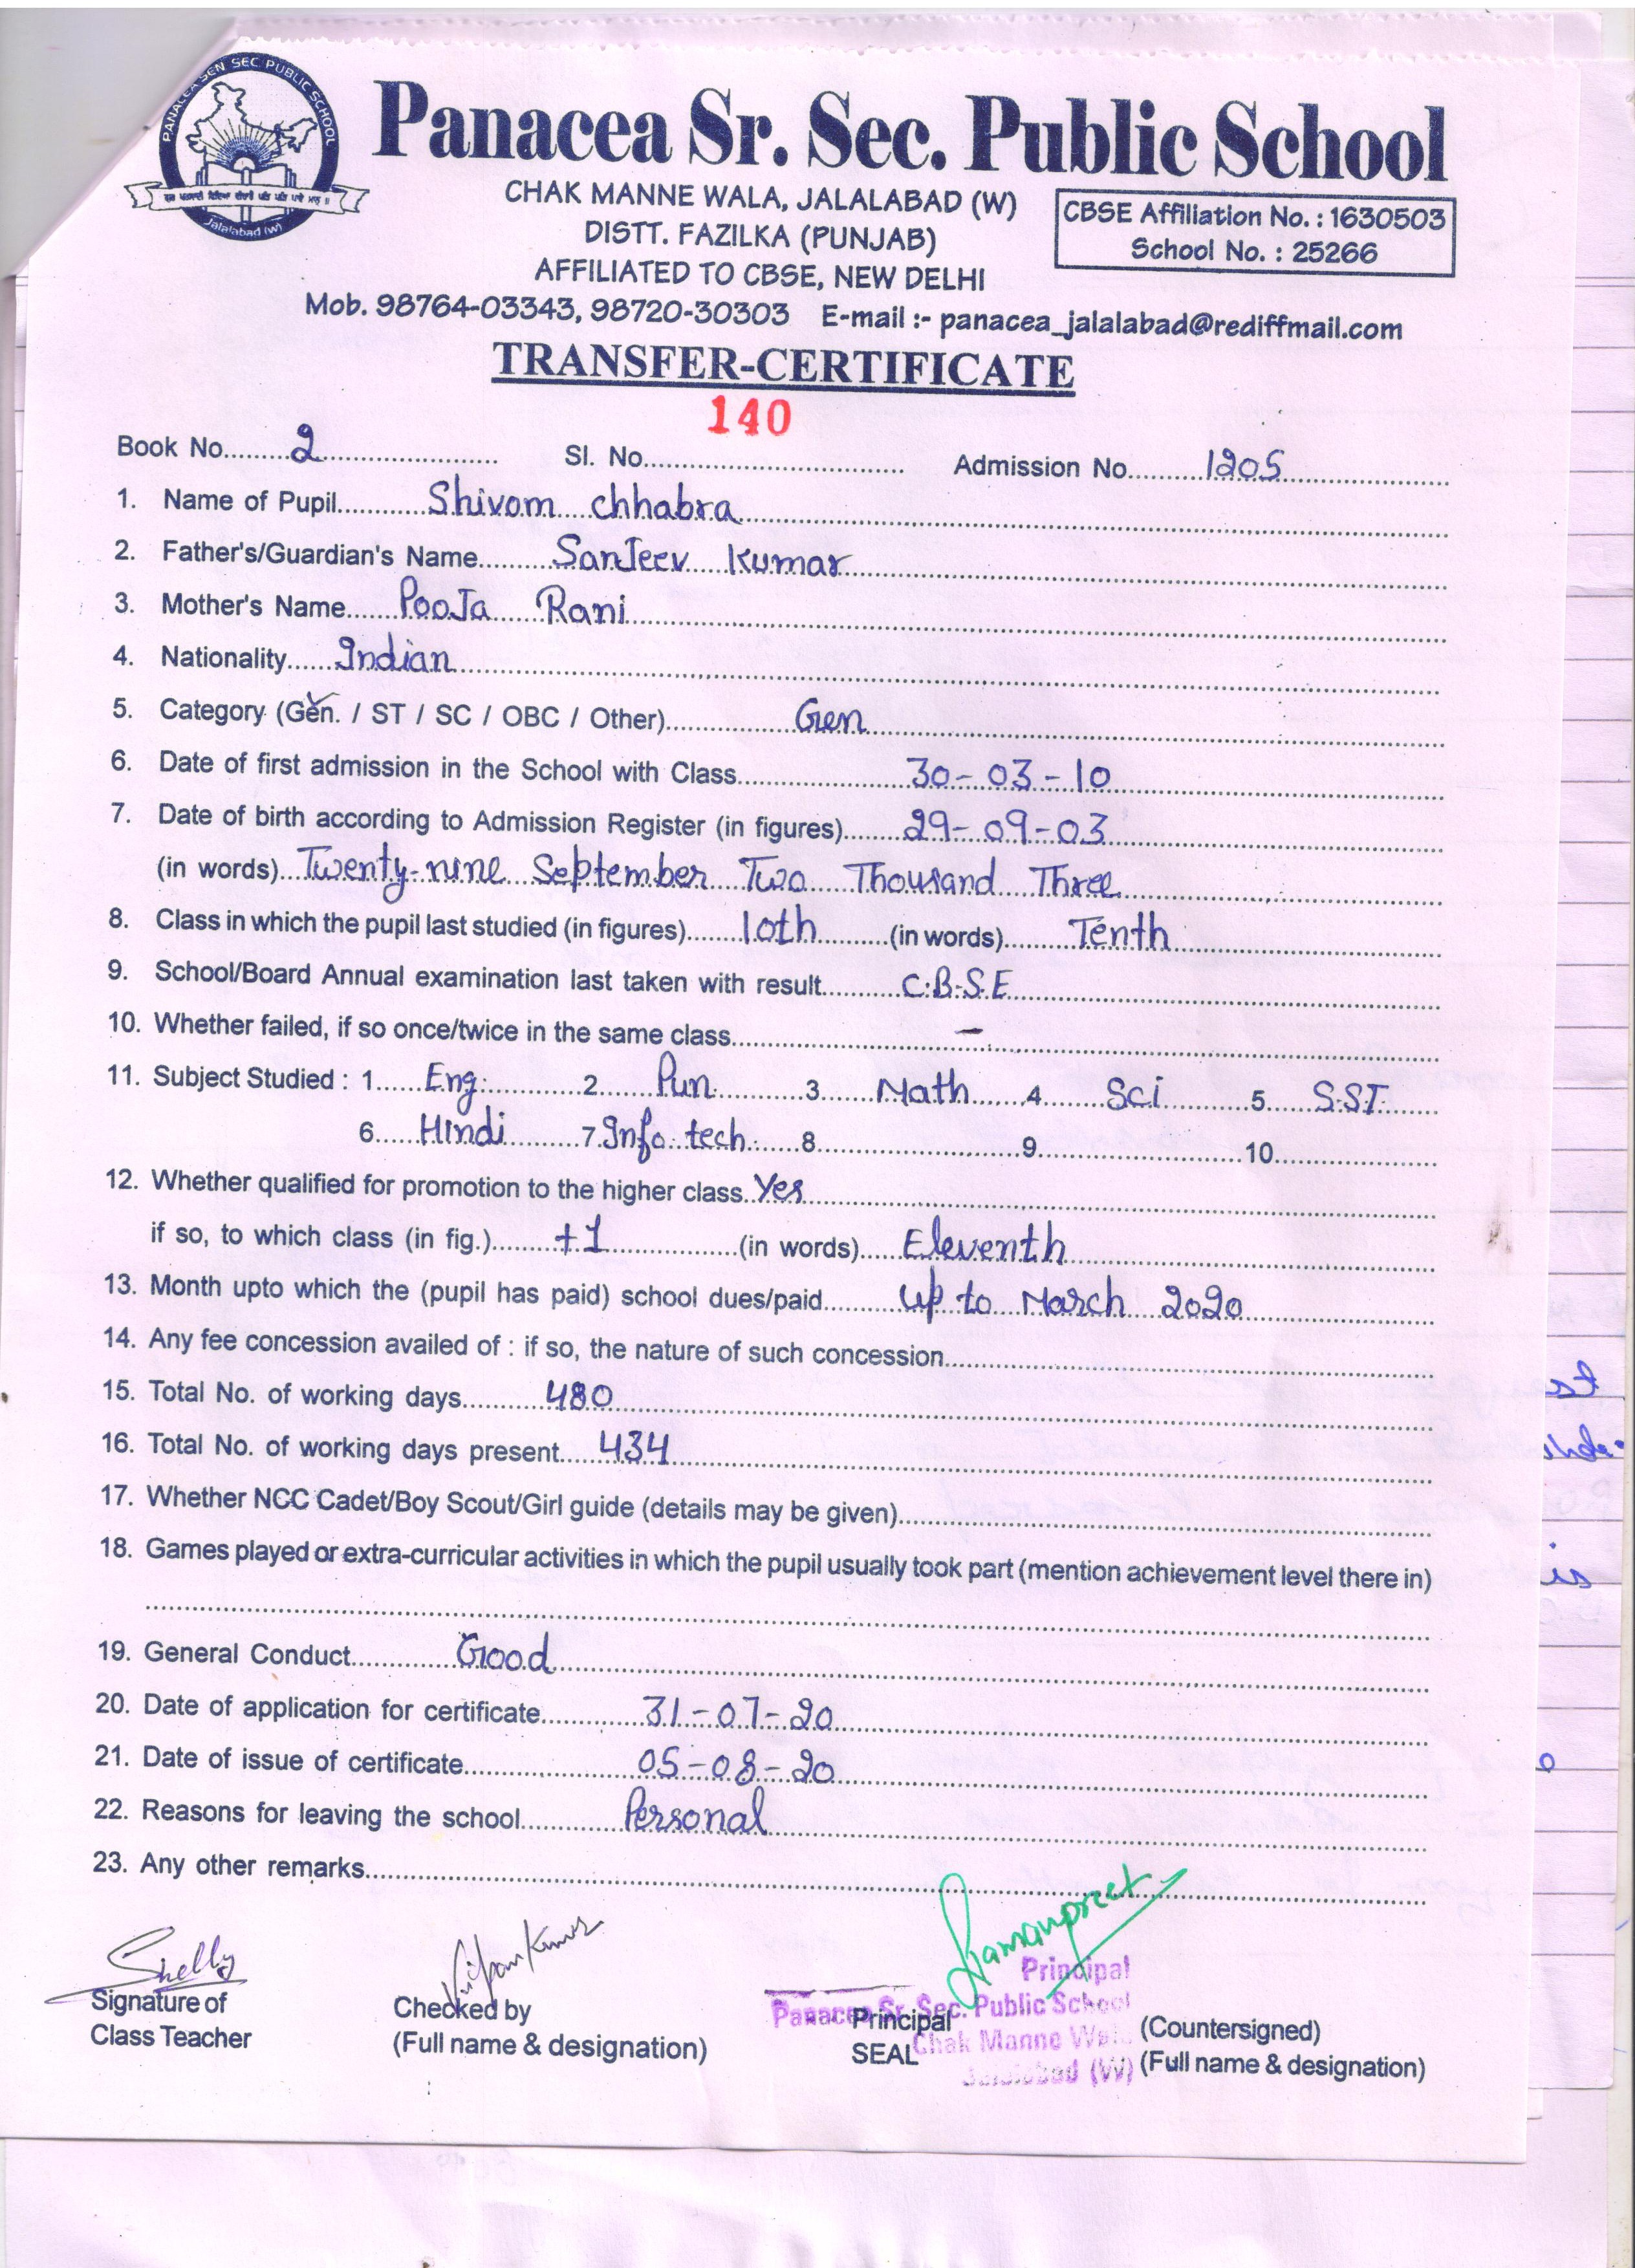 PANACEA SEN SEC PUBLIC SCHOOL
Jalalabad (W)
Panacea Sr. Sec. Public School
CHAK MANNE WALA, JALALABAD (W)
DISTT. FAZILKA (PUNJAB)
AFFILIATED TO CBSE, NEW DELHI
CBSE Affiliation No. : 1630503
School No. : 25266
Mob. 98764-03343, 98720-30303 E-mail :- panacea_jalalabad@rediffmail.com
TRANSFER-CERTIFICATE
140
Book No. 2 Sl. No. Admission No. 1205
1. Name of Pupil Shivom Chhabra
2. Father's/Guardian's Name SanJeev Kumar
3. Mother's Name PooJa Rani
4. Nationality Indian
5. Category (Gen. / ST / SC / OBC / Other) Gen
6. Date of first admission in the School with Class 30-03-10
7. Date of birth according to Admission Register (in figures) 29-09-03
(in words) Twenty-nine September Two Thousand Three
8. Class in which the pupil last studied (in figures) 10th (in words) Tenth
9. School/Board Annual examination last taken with result C.B.S.E
10. Whether failed, if so once/twice in the same class –
11. Subject Studied : 1 Eng. 2 Pun. 3 Math 4 Sci 5 S.ST.
6 Hindi 7 Info. tech. 8 9 10
12. Whether qualified for promotion to the higher class Yes
if so, to which class (in fig.) +1 (in words) Eleventh
13. Month upto which the (pupil has paid) school dues/paid Up to March 2020
14. Any fee concession availed of : if so, the nature of such concession
15. Total No. of working days 480
16. Total No. of working days present 434
17. Whether NCC Cadet/Boy Scout/Girl guide (details may be given)
18. Games played or extra-curricular activities in which the pupil usually took part (mention achievement level there in)
19. General Conduct Good
20. Date of application for certificate 31-07-20
21. Date of issue of certificate 05-08-20
22. Reasons for leaving the school Personal
23. Any other remarks
Shelly
Signature of
Class Teacher
Kumar
Checked by
(Full name & designation)
Ramanpreet
Principal
Panacea Sr. Sec. Public School
Chak Manne Wala
Jalalabad (W)
Principal
SEAL
(Countersigned)
(Full name & designation)